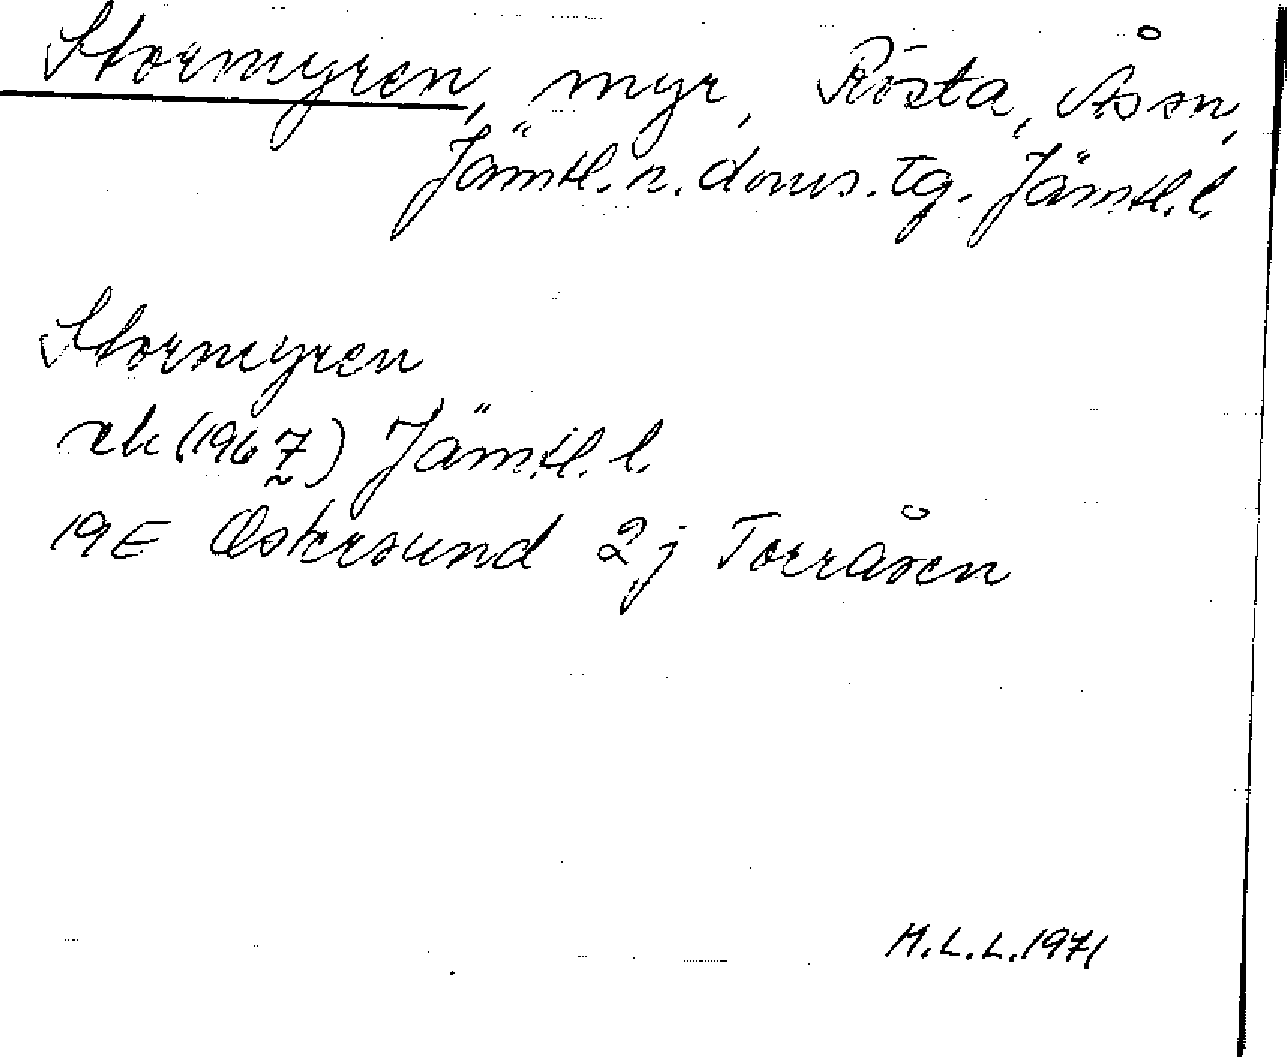 Stormyren, myr, Rösta, Ås sn,
Jämtl. n. doms. tg. Jämtl. l.
Stormyren
rek (1967) Jämtl. l.
19E Östersund 2j Torråsen
M.L.L. 1971